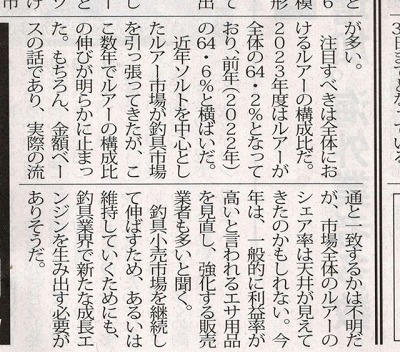 が多い。
注目すべきは全体にお
けるルアーの構成比だ。
2023年度はルアーが
全体の64・2％となって
おり、前年（2022年）
の64・6％と横ばいだ。
近年ソルトを中心とし
たルアー市場が釣具市場
を引っ張ってきたが、こ
こ数年でルアーの構成比
の伸びが明らかに止まっ
た。もちろん、金額ベー
スの話であり、実際の流
通と一致するかは不明だ
が、市場全体のルアーの
シェア率は天井が見えて
きたのかもしれない。今
年は、一般的に利益率が
高いと言われるエサ用品
を見直し、強化する販売
業者も多いと聞く。
釣具小売市場を継続し
て伸ばすため、あるいは
維持していくためにも、
釣具業界で新たな成長エ
ンジンを生み出す必要が
ありそうだ。